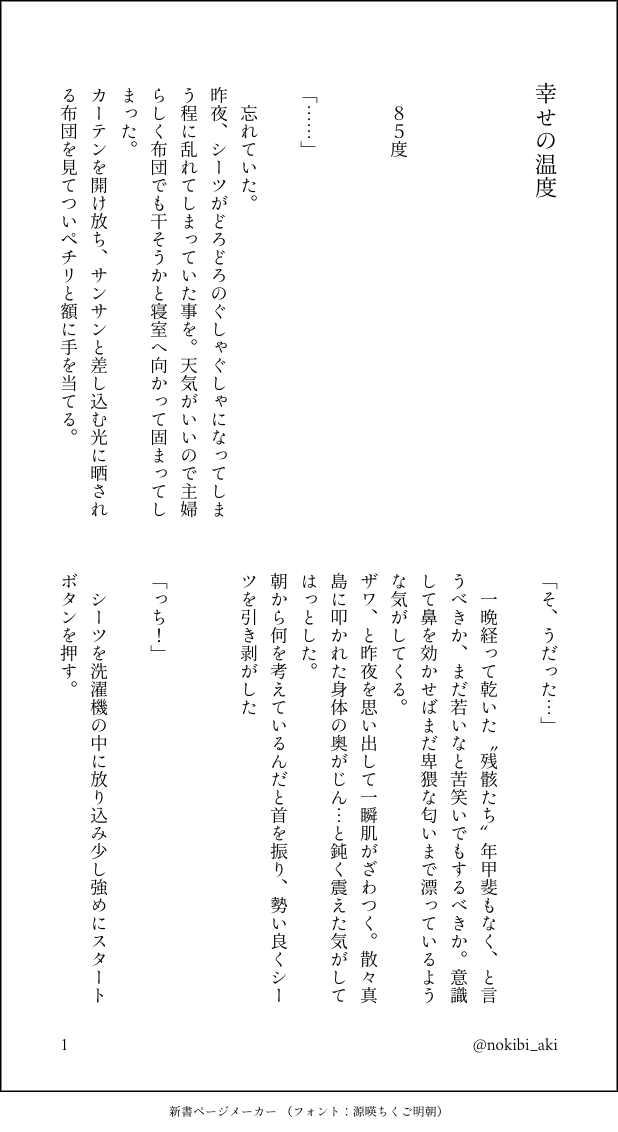 幸せの温度
85度
「……」
忘れていた。
昨夜、シーツがどろどろのぐしゃぐしゃになってしま
う程に乱れてしまっていた事を。天気がいいので主婦
らしく布団でも干そうかと寝室へ向かって固まってし
まった。
カーテンを開け放ち、サンサンと差し込む光に晒され
る布団を見てついペチリと額に手を当てる。
「そ、うだった…」
一晩経って乾いた〝残骸たち〟年甲斐もなく、と言
うべきか、まだ若いなと苦笑いでもするべきか。意識
して鼻を効かせばまだ卑猥な匂いまで漂っているよう
な気がしてくる。
ザワ、と昨夜を思い出して一瞬肌がざわつく。散々真
島に叩かれた身体の奥がじん…と鈍く震えた気がして
はっとした。
朝から何を考えているんだと首を振り、勢い良くシー
ツを引き剥がした
「っち！」
シーツを洗濯機の中に放り込み少し強めにスタート
ボタンを押す。
1
@nokibi_aki
新書ページメーカー （フォント：源暎ちくご明朝）